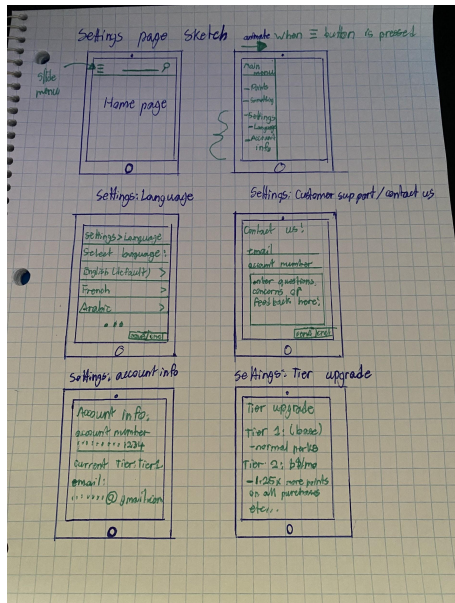 Settings page Sketch
animate when ☰ button is pressed
slide
menu
Home page
main
menu
- Points
-
- Settings
- Language
- Account
info
Settings: Language
Settings > Language
Select language:
English (default) >
French >
Arabic >
...
send/cncl
Settings: Customer support/contact us
Contact us!
email
account number
enter questions,
concerns of
feedback here:
send/cncl
Settings: account info
Account info:
account number
........1234
current Tier: Tier 1
email:
......@gmail.com
Settings: Tier upgrade
Tier upgrade
Tier 1: (base)
-normal perks
Tier 2: 6$/mo
-1.25x more points
on all purchases
etc...